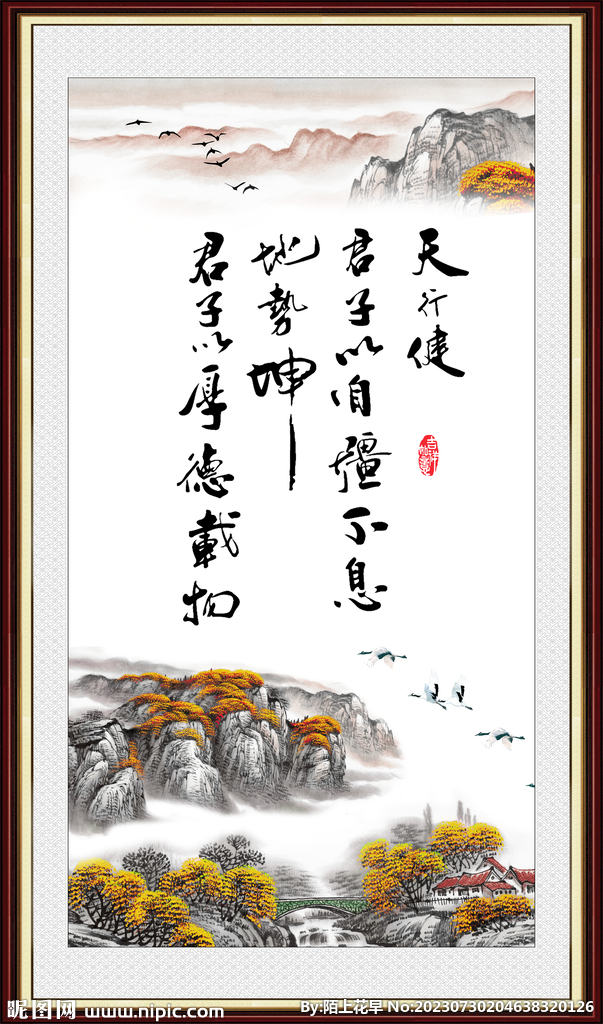 天行健
君子以自彊不息
地勢坤
君子以厚德載物
吉祥如意
昵图网 www.nipic.com
By:陌上花早 No:20230730204638320126